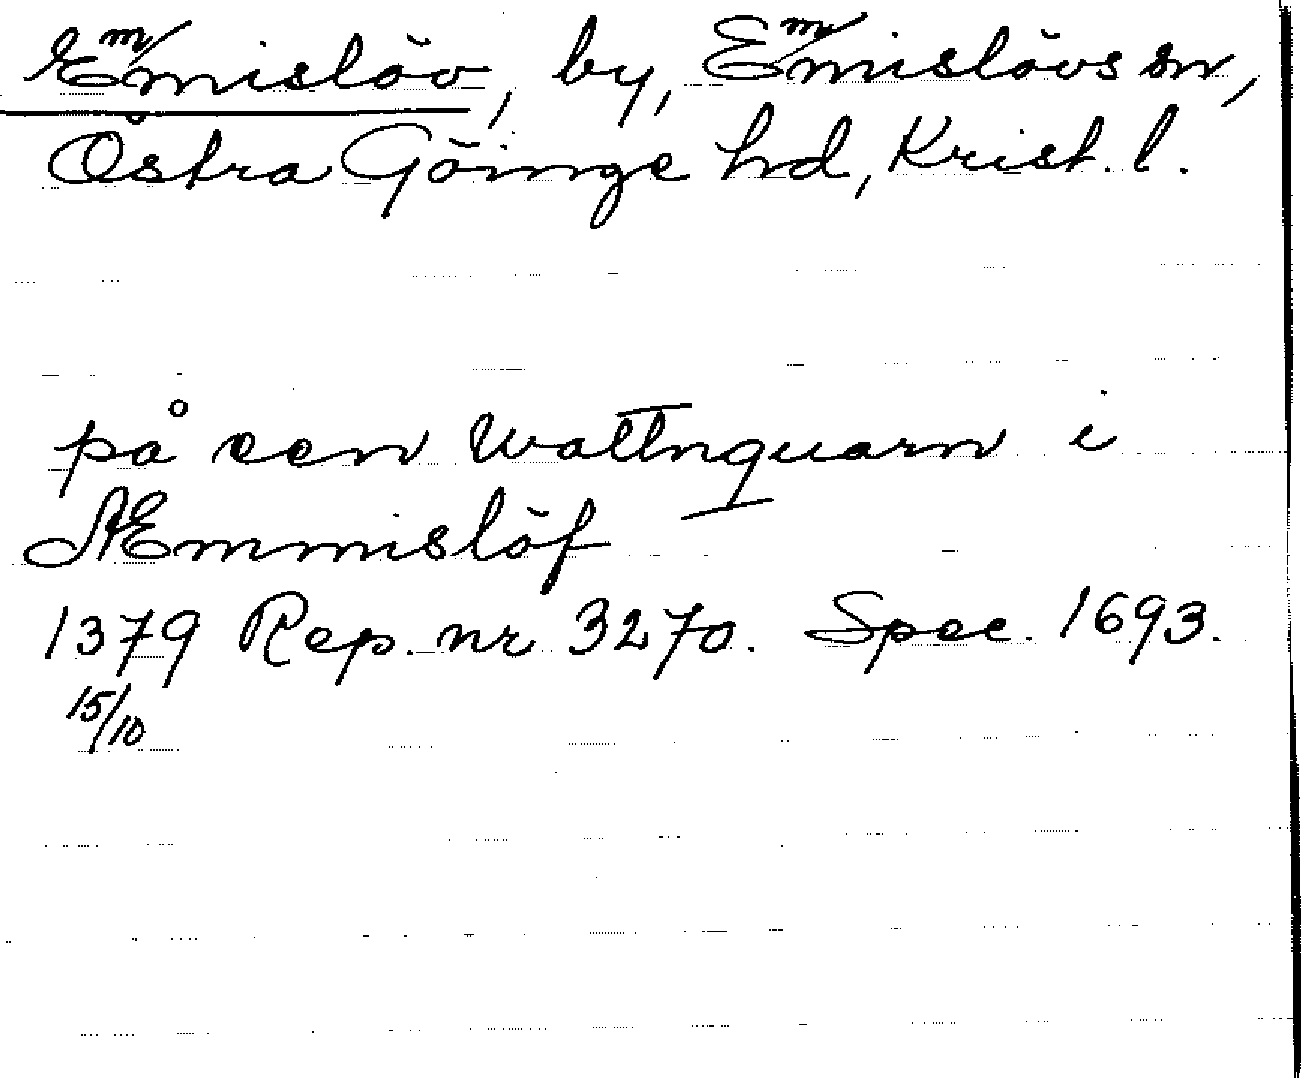 Emmislöv, by, Emmislövs sn,
Östra Göinge hd, Krist. l.
på een wattnquarn i
Æmmislöf
1379 Rep. nr 3270. Spec. 1693.
15/10